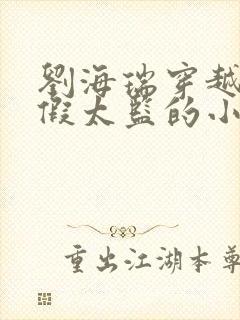 劉海瑞穿越
假太監的小
重出江湖本尊